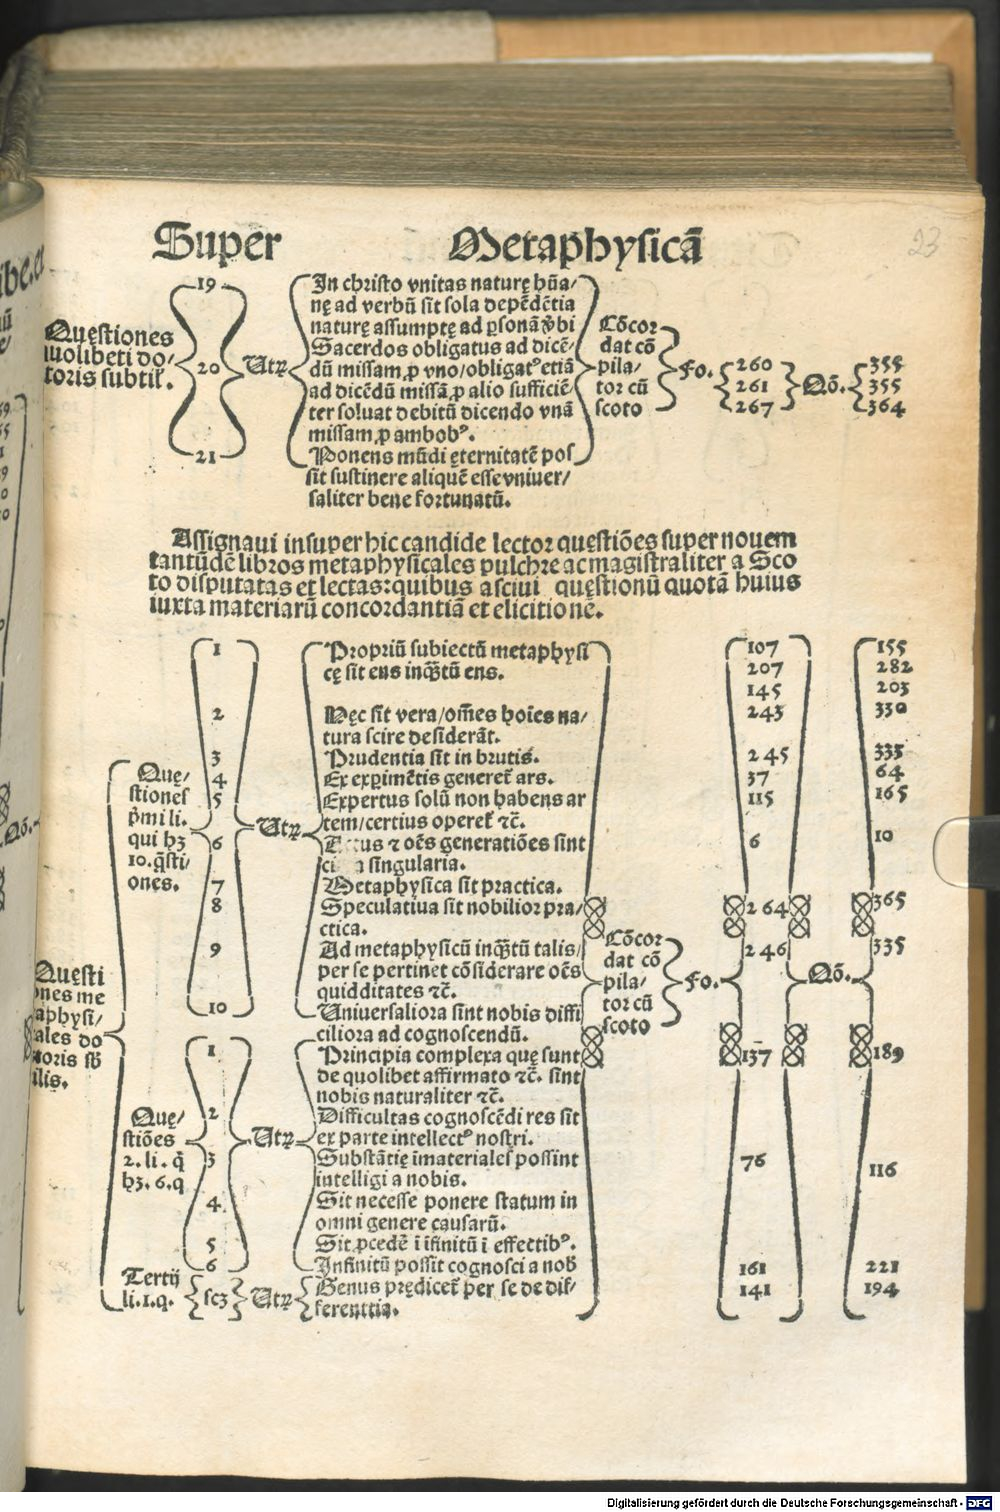 Super Metaphysicā
23
Quęstiones
uolibeti do/
toris subtil̛.
19
20
21
Utꝝ
In christo vnitas naturę hūa/
nę ad verbū sit sola depēdētia
naturę assumptę ad ꝑsonā
Sacerdos obligatus ad dicē/
dū missam ꝓ vno/obligatꝰ etiā
ad dicēdū missā ꝓ alio sufficiē/
ter soluat debitū dicendo vnā
missam ꝓ ambobꝰ.
Ponens mūdi ęternitatē pos
sit sustinere aliquē esse vniuer/
saliter bene fortunatū.
Cōcor
dat cō
pila/
tor cū
scoto
Fo.
260
261
267
Qō.
355
355
364
Assignaui insuper hic candide lector quęstiōes super nouem
tantūdē libros metaphysicales pulchre ac magistraliter a Sco
to disputatas et lectas: quibus asciui quęstionū quotā huius
iuxta materiarū concordantiā et elicitionē.
Questi
nes me
aphysi/
ales do
toris
ilis.
Quę/
stiones
p̄mi li.
qui hꝫ
10. q̄sti/
ones.
1
2
3
4
5
6
7
8
9
10
Utꝝ
Propriū subiectū metaphysi
cę sit ens inqꝫtū ens.
Hęc sit vera/om̄es hoīes na/
tura scire desiderāt.
Prudentia sit in brutis.
Ex exꝑimētis generet̄ ars.
Expertus solū non habens ar
tem/certius operet̄ ⁊c̄.
⁊ oēs generatiōes sint
singularia.
Metaphysica sit practica.
Speculatiua sit nobilior pra/
ctica.
Ad metaphysicū inqꝫtū talis/
per se pertinet cōsiderare oēs
quidditates ⁊c̄.
Uniuersaliora sint nobis diffi
ciliora ad cognoscendū.
Quę/
stiōes
2. li. q̄
hꝫ. 6. q
1
2
3
4
5
6
Utꝝ
Principia complexa quę sunt
de quolibet affirmato ⁊c̄. sint
nobis naturaliter ⁊c̄.
Difficultas cognoscēdi res sit
ex parte intellectꝰ nostri.
Substātię īmateriales possint
intelligi a nobis.
Sit necesse ponere statum in
omni genere causarū.
Sit ꝓcedē ī īfinitū ī effectibꝰ.
Infinitū possit cognosci a nob̄
Tertij
li. 1. q.
scꝫ
Utꝝ
Genus prędicet̄ per se de dif/
ferentia.
Cōcor
dat cō
pila/
tor cū
scoto
Fo.
107
207
145
243
245
37
115
6
264
246
137
76
161
141
Qō.
155
282
203
330
335
64
165
10
365
335
189
116
221
194
Qō.
Digitalisierung gefördert durch die Deutsche Forschungsgemeinschaft - DFG